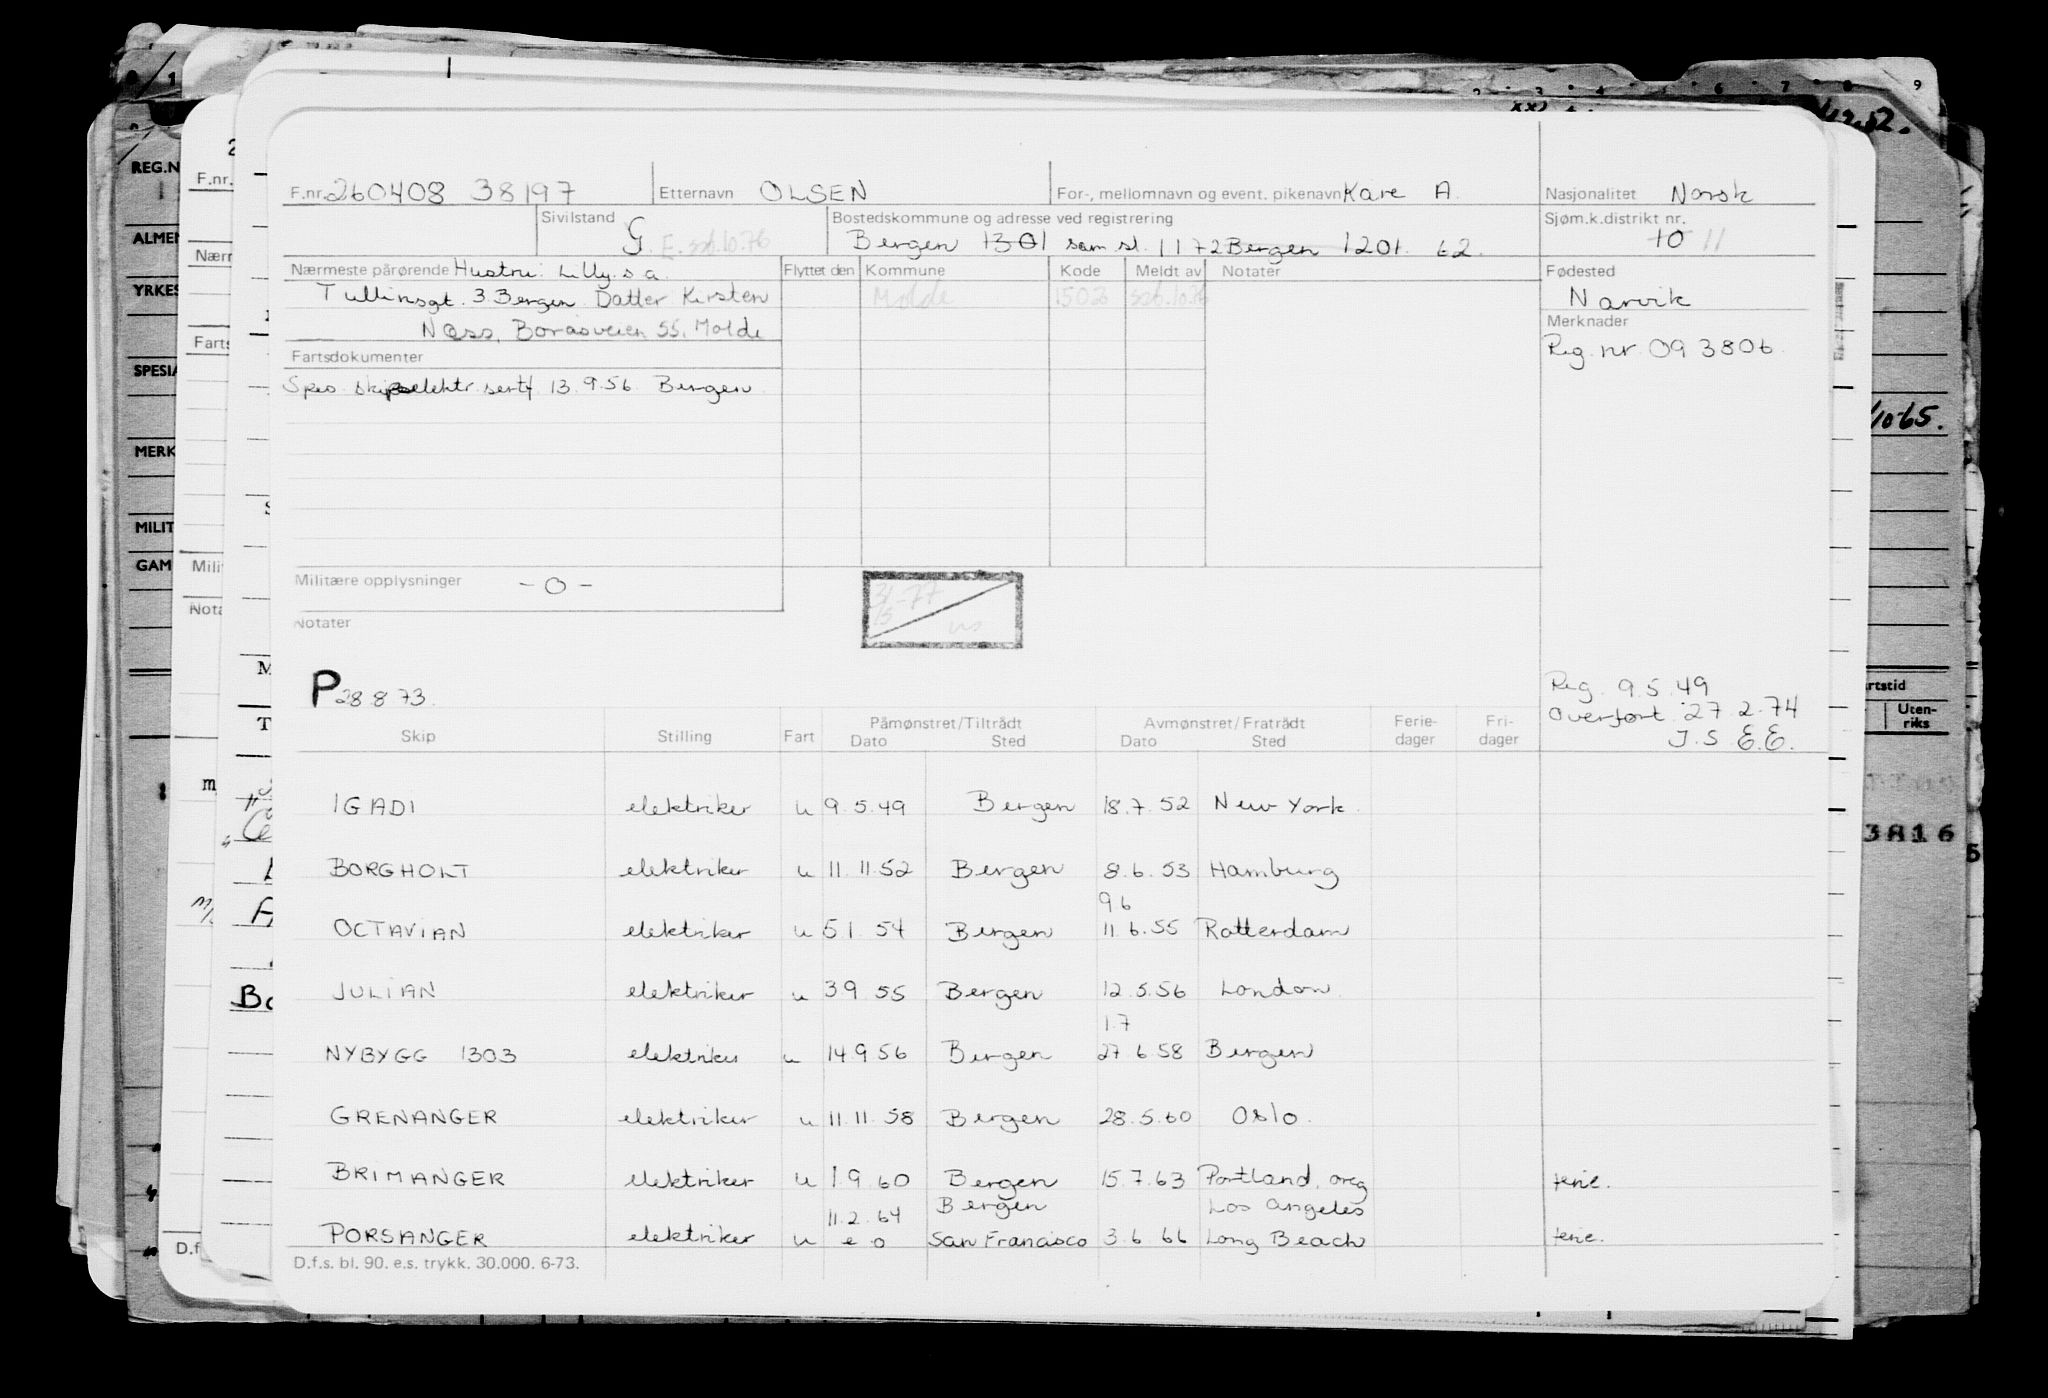 F.nr. 260408 38197 Etternavn OLSEN For-, mellomnavn og event. pikenavn Kåre A. Nasjonalitet Norsk
Sivilstand G. E. set.10.76 Bostedskommune og adresse ved registrering Sjøm.k.distrikt nr.
Bergen 1301 som sl. 1172 Bergen 1201. 62. 10 11
Nærmeste pårørende Hustru: Lilly s.a. Flyttet den Kommune Kode Meldt av Notater Fødested
Tullinsgt. 3 Bergen. Datter Kirsten Molde 1502 Narvik
Næss, Boråsveien 55, Molde Merknader
Reg. nr. 093806.
Fartsdokumenter
Spes. skipselektr. sertf. 13.9.56 Bergen.
Militære opplysninger - 0 -
31-77
Notater
P 28.8.73.
Reg. 9.5.49
Overført 27.2.74
J.S E.E.
Skip Stilling Fart Påmønstret/Tiltrådt Avmønstret/Fratrådt Ferie- Fri-
Dato Sted Dato Sted dager dager
IGADI elektriker u 9.5.49 Bergen 18.7.52 New York.
BORGHOLT elektriker u 11.11.52 Bergen 8.6.53 Hamburg
9.6
OCTAVIAN elektriker u 5.1.54 Bergen 11.6.55 Rotterdam
JULIAN elektriker u 3.9.55 Bergen 12.5.56 London.
1.7
NYBYGG 1303 elektriker u 14.9.56 Bergen 27.6.58 Bergen
GRENANGER elektriker u 11.11.58 Bergen 28.5.60 Oslo.
BRIMANGER elektriker u 1.9.60 Bergen 15.7.63 Portland, oreg ferie.
11.2.64 Bergen Los Angeles
PORSANGER elektriker u e o San Francisco 3.6.66 Long Beach ferie.
D.f.s. bl. 90. e.s. trykk. 30.000. 6-73.
REG.N
F.nr.
ALMEN
Nærr
YRKES
Farts
SPESIA
MERK
MILIT
GAM
Milit
Nota
D.f
Bo
10-65.
rtstid
Uten-
riks
3816